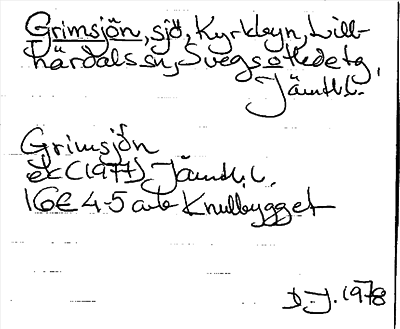 Grimsjön, sjö, Kyrkbyn, Lill-
härdals sn, Svegs
Jämtl.l.
Grimsjön
ek (1977) Jämtl.l.
16E 4-5 Knullbygget
D.J. 1978